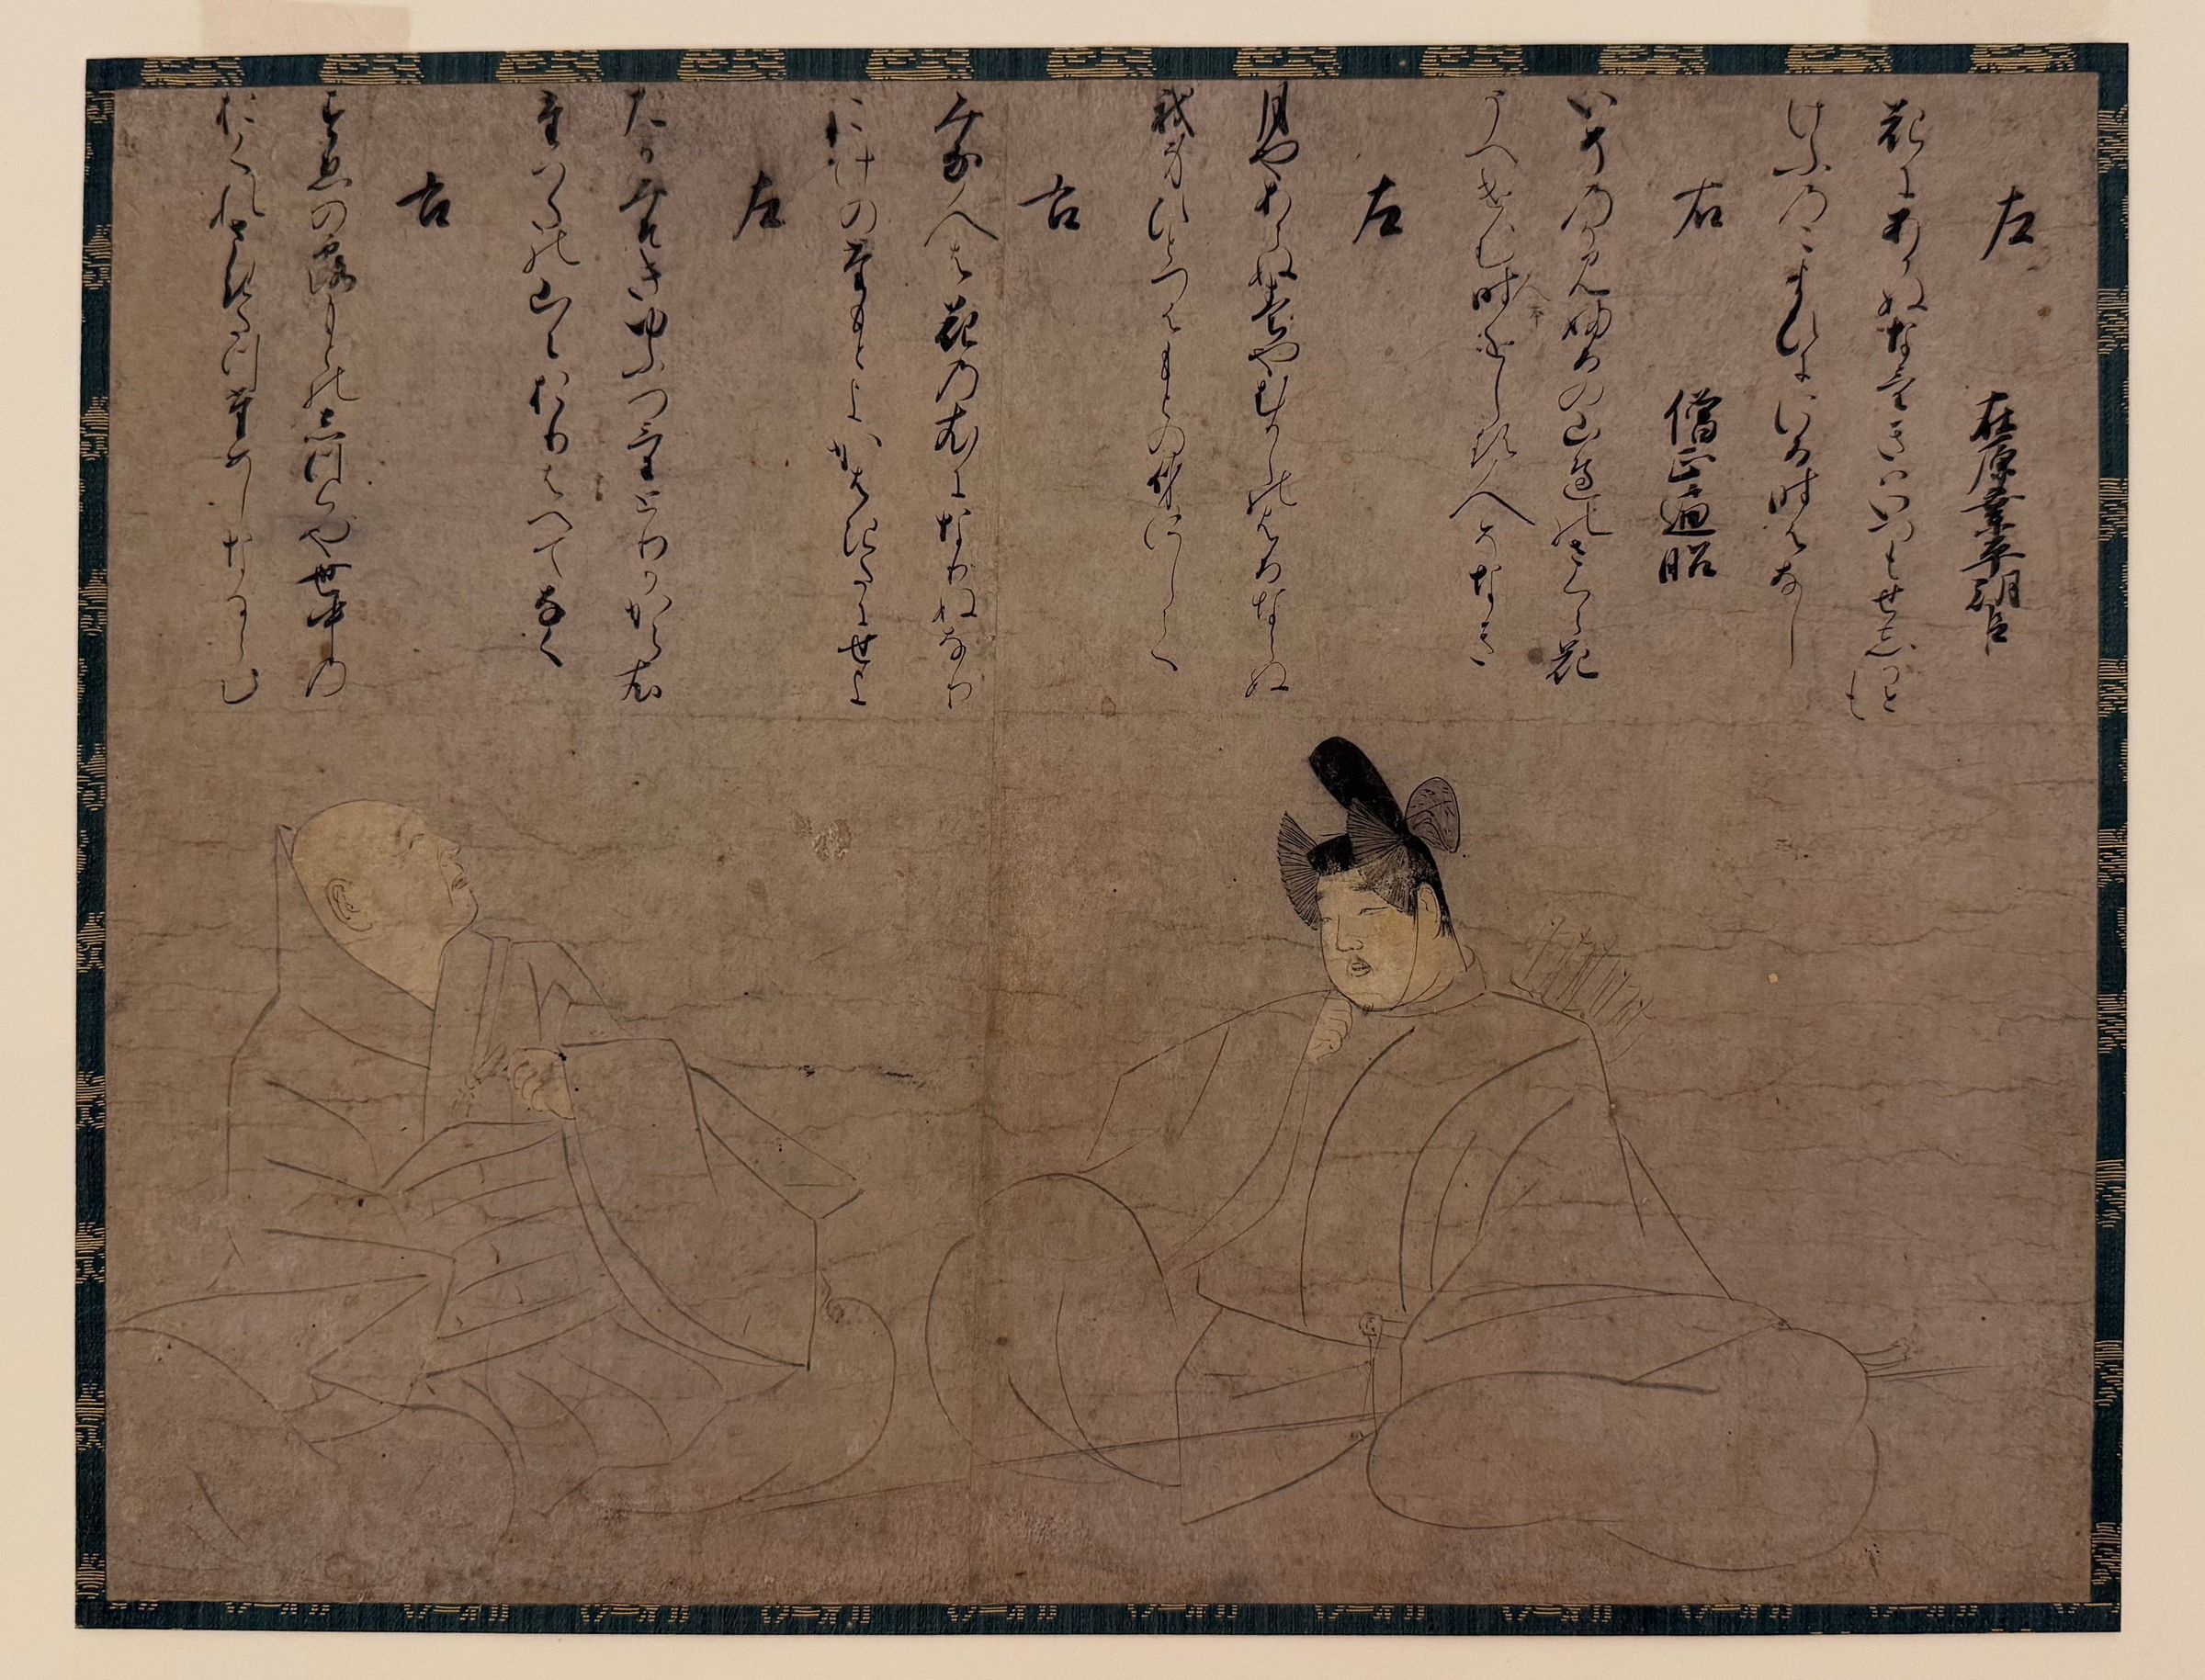 左 在原業平朝臣
花にあかぬなけきはいつもせしかとも
けふのこよひにいる時はなし
右 僧正遍昭
いその可見ふるの山邊のさくら花
うへけむ時をしる人そなき
左
月やあらぬ春やむかしのはるならぬ
我身ひとつはもとの身にして
右
みな人は花の衣になりぬなり
こけのたもとよかはきたにせよ
左
たかみそきゆふつけとりかから衣
たつたの山におりはへてなく
右
すゑの露もとのしつくや世中の
おくれさきたつためしなるらむ